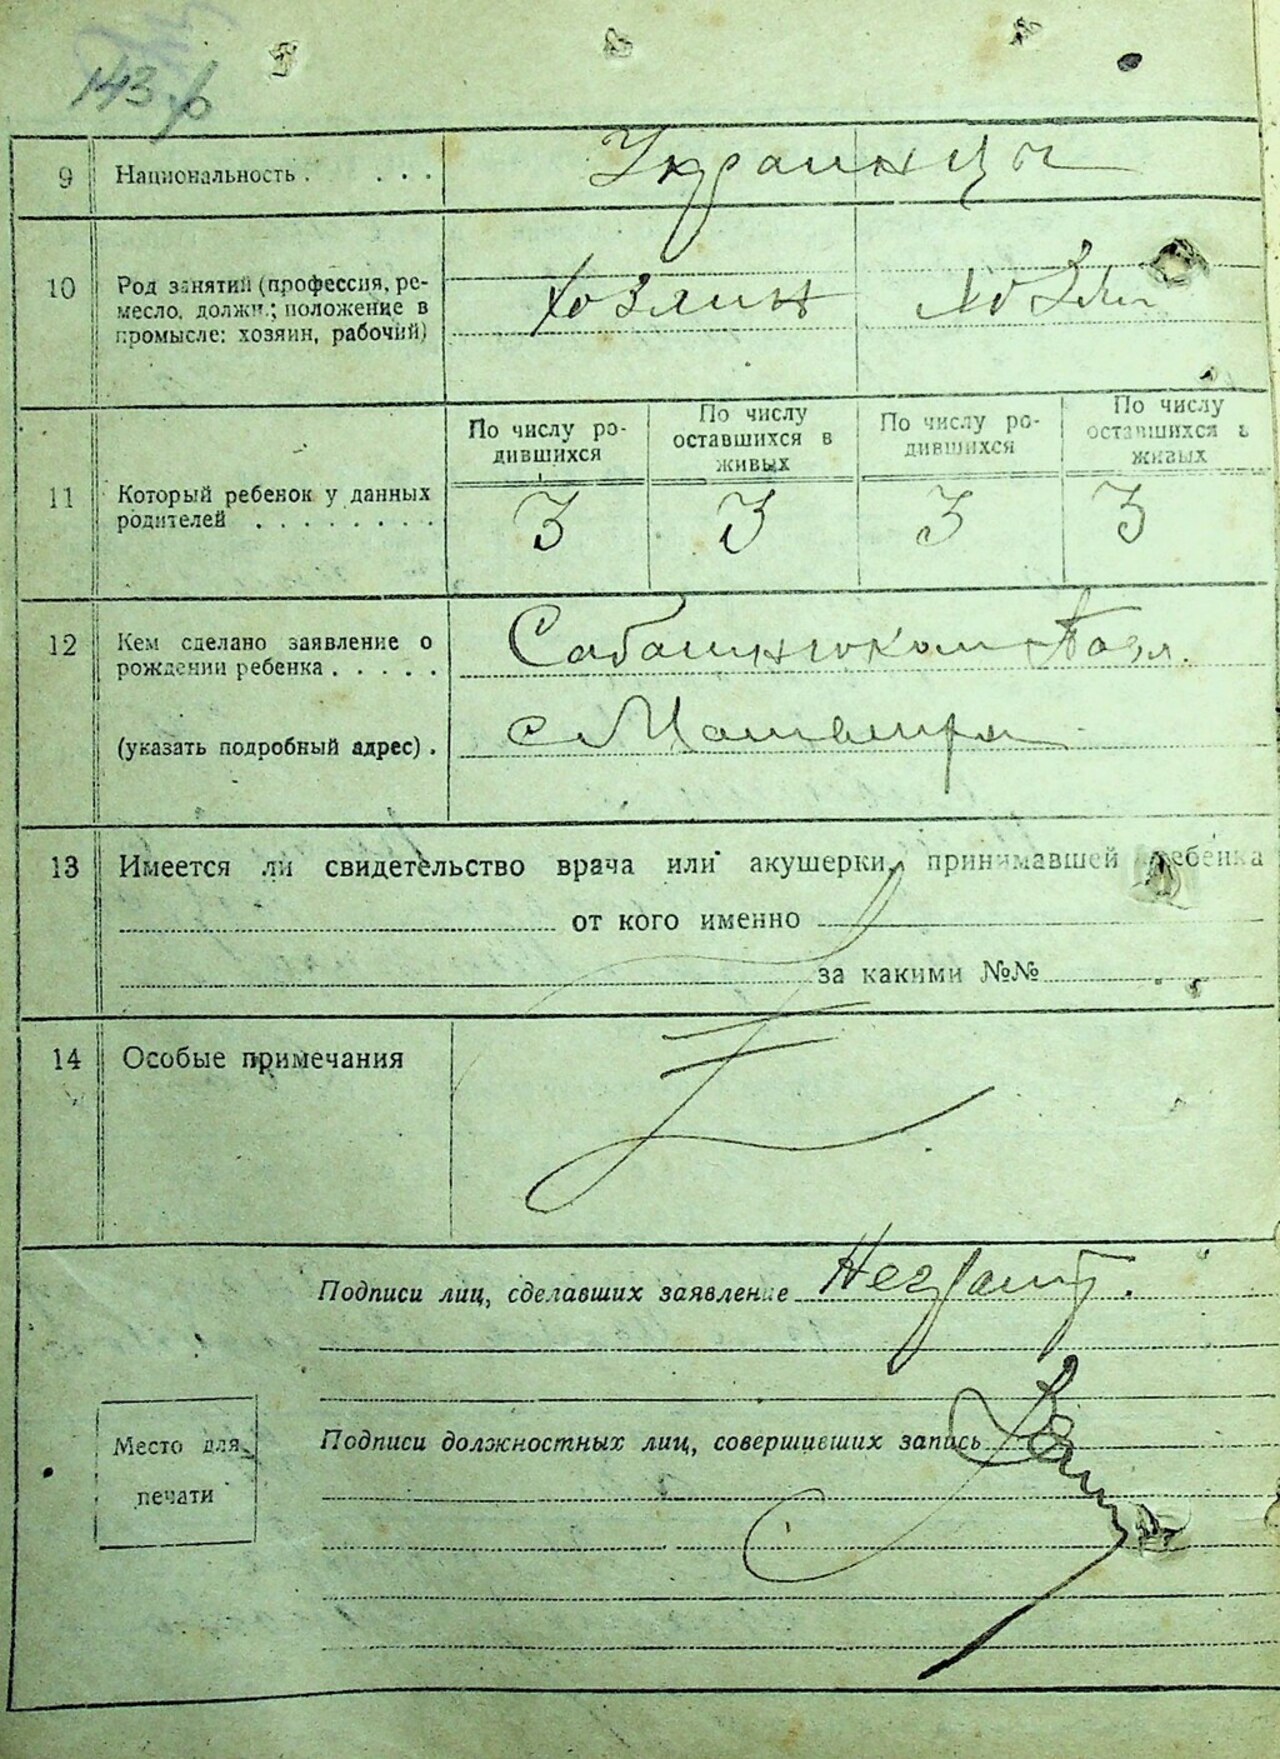 143
9 Национальность . . . . Украинцы
10 Род занятий (профессия, ре-
месло, должн.; положение в
промысле: хозяин, рабочий)
Хозяин Хозяи
11 Который ребенок у данных
родителей . . . . . . . .
По числу ро-
дившихся
По числу
оставшихся в
живых
По числу ро-
дившихся
По числу
оставшихся в
живых
3 3 3 3
12 Кем сделано заявление о
рождении ребенка . . . . .
Сабашнюком Павл.
(указать подробный адрес) .
с
13 Имеется ли свидетельство врача или акушерки, принимавшей ребенка
от кого именно
за какими №№
14 Особые примечания
Подписи лиц, сделавших заявление Неграмот.
Место для
печати
Подписи должностных лиц, совершивших запись